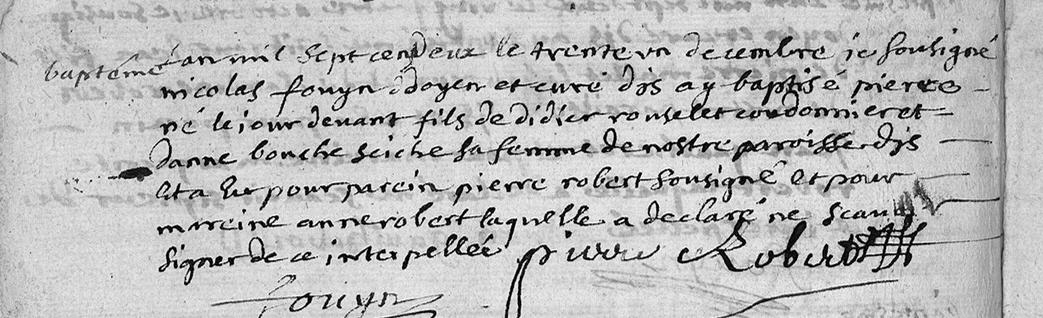 baptême
L'an mil sept cent deux le trente un decembre je sousigné
nicolas fouyn doyen et curé d'is ay baptisé pierre
né le jour devant fils de didier rouselet cordonnier et
d'anne bouche seiche sa femme de nostre paroisse d'is
et a eu pour parein pierre robert sousigné et pour
mareine anne robert laquelle a declaré ne scavoir
signer de ce interpellée pierre Robert
fouyn